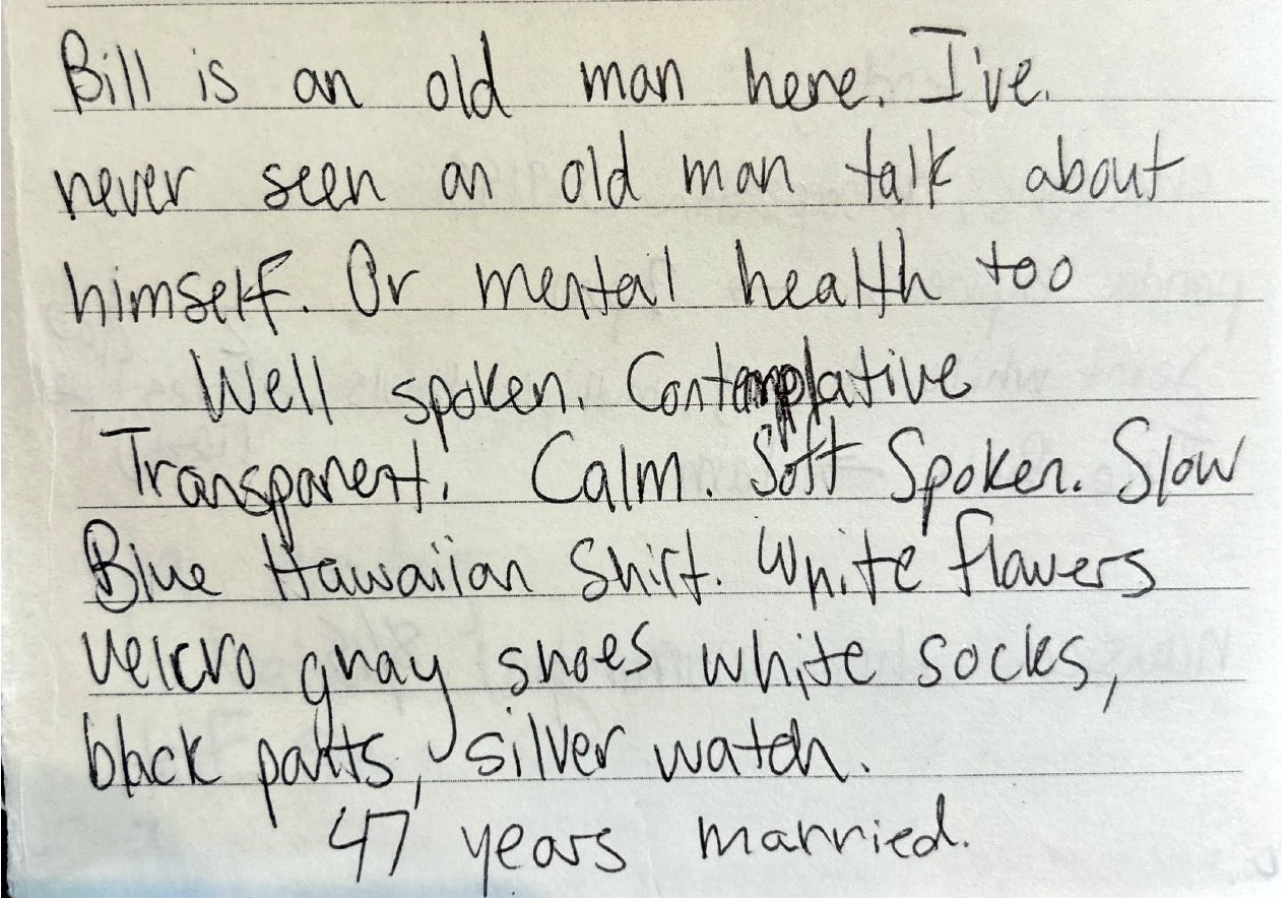 Bill is an old man here. I've.
never seen an old man talk about
himself. Or mental health too
Well spoken. Contemplative
Transparent. Calm. Soft Spoken. Slow
Blue Hawaiian Shirt. White flowers
velcro gray shoes white socks,
black pants, silver watch.
47 years married.